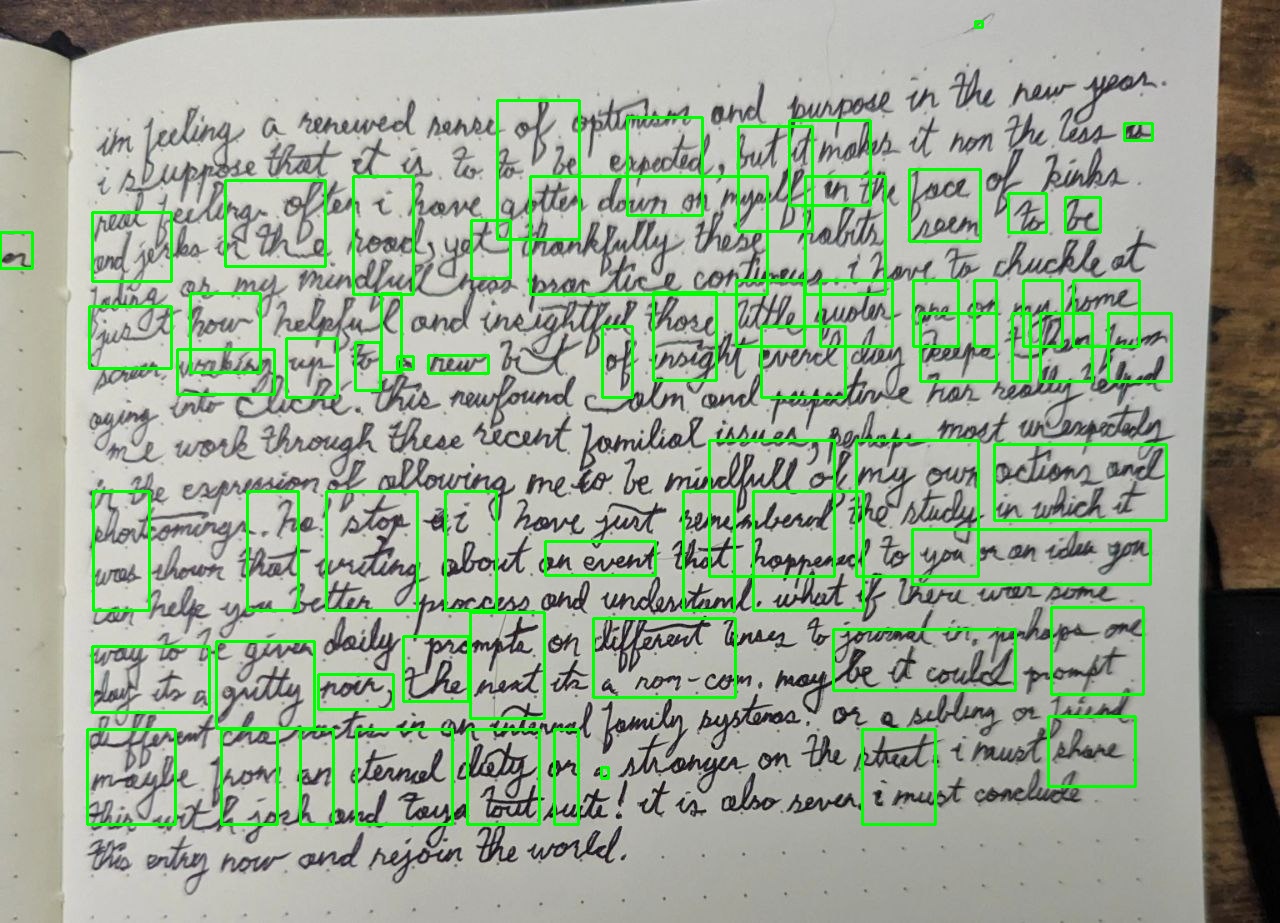 im feeling a renewed sense of optimism and purpose in the new year.
i suppose that it is to to be expected, but it makes it non the less a
real feeling. often i have gotten down on myself in the face of kinks
and jerks in the road, yet thankfully these habits seem to be
fading as my mindfull ness practice continues. i have to chuckle at
just how helpful and insightful those little quotes are on my home
screen. waking up to a new bit of insight everd day keeps them from
aging into cliché. this newfound calm and perspective has really helped
me work through these recent familial issues, perhaps most unexpectedly
in the expression of allowing me to be mindfull of my own actions and
shortcomings. ha! stop i have just remembered the study in which it
was shown that writing about an event that happened to you or an idea you
can help you better proccess and understand. what if there was some
way to be given daily prompts on different lenses to journal in, perhaps one
day its a gritty noir, the next its a rom-com. may be it could prompt
different characters in an internal family systems. or a sibling or friend
maybe from an eternal diety or a stranger on the street. i must share
this with josh and taya tout suite! it is also seven i must conclude
this entry now and rejoin the world.
er